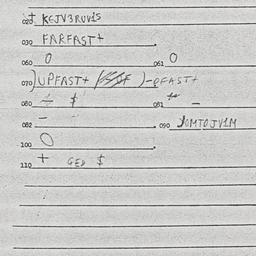 020 + KEJV3RUV1S
030 FARFAST+
060 0 061 0
070 )UPFAST+ )-PFAST+
080 ÷ $ 081 + -
082 - 090 JOMTOJV1M
100 0
110 + GED $